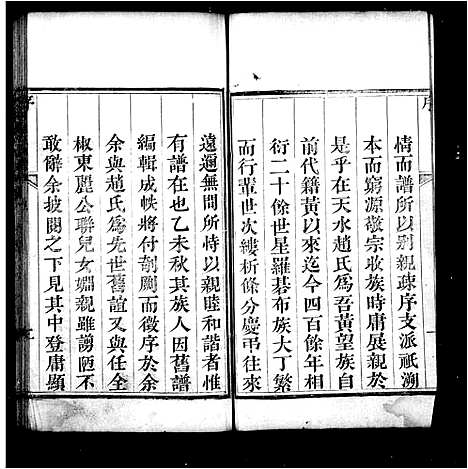 序
情而譜所以别親疎序支派祇溯
本而窮源敬宗收族時庸展親於
是乎在天水趙氏爲吾黃望族自
前代籍黃以來迄今四百餘年相
衍二十餘世星羅碁布族大丁繁
而行輩世次縷析條分慶弔往來
遠邇無間所恃以親睦和諧者惟
有譜在也乙未秋其族人因舊譜
編輯成帙將付剞劂而徵序於余
余與趙氏爲先世舊誼又與任全
椒東麗公聯兒女婣親雖謭陋不
敢辭余披閱之下見其中登庸顯